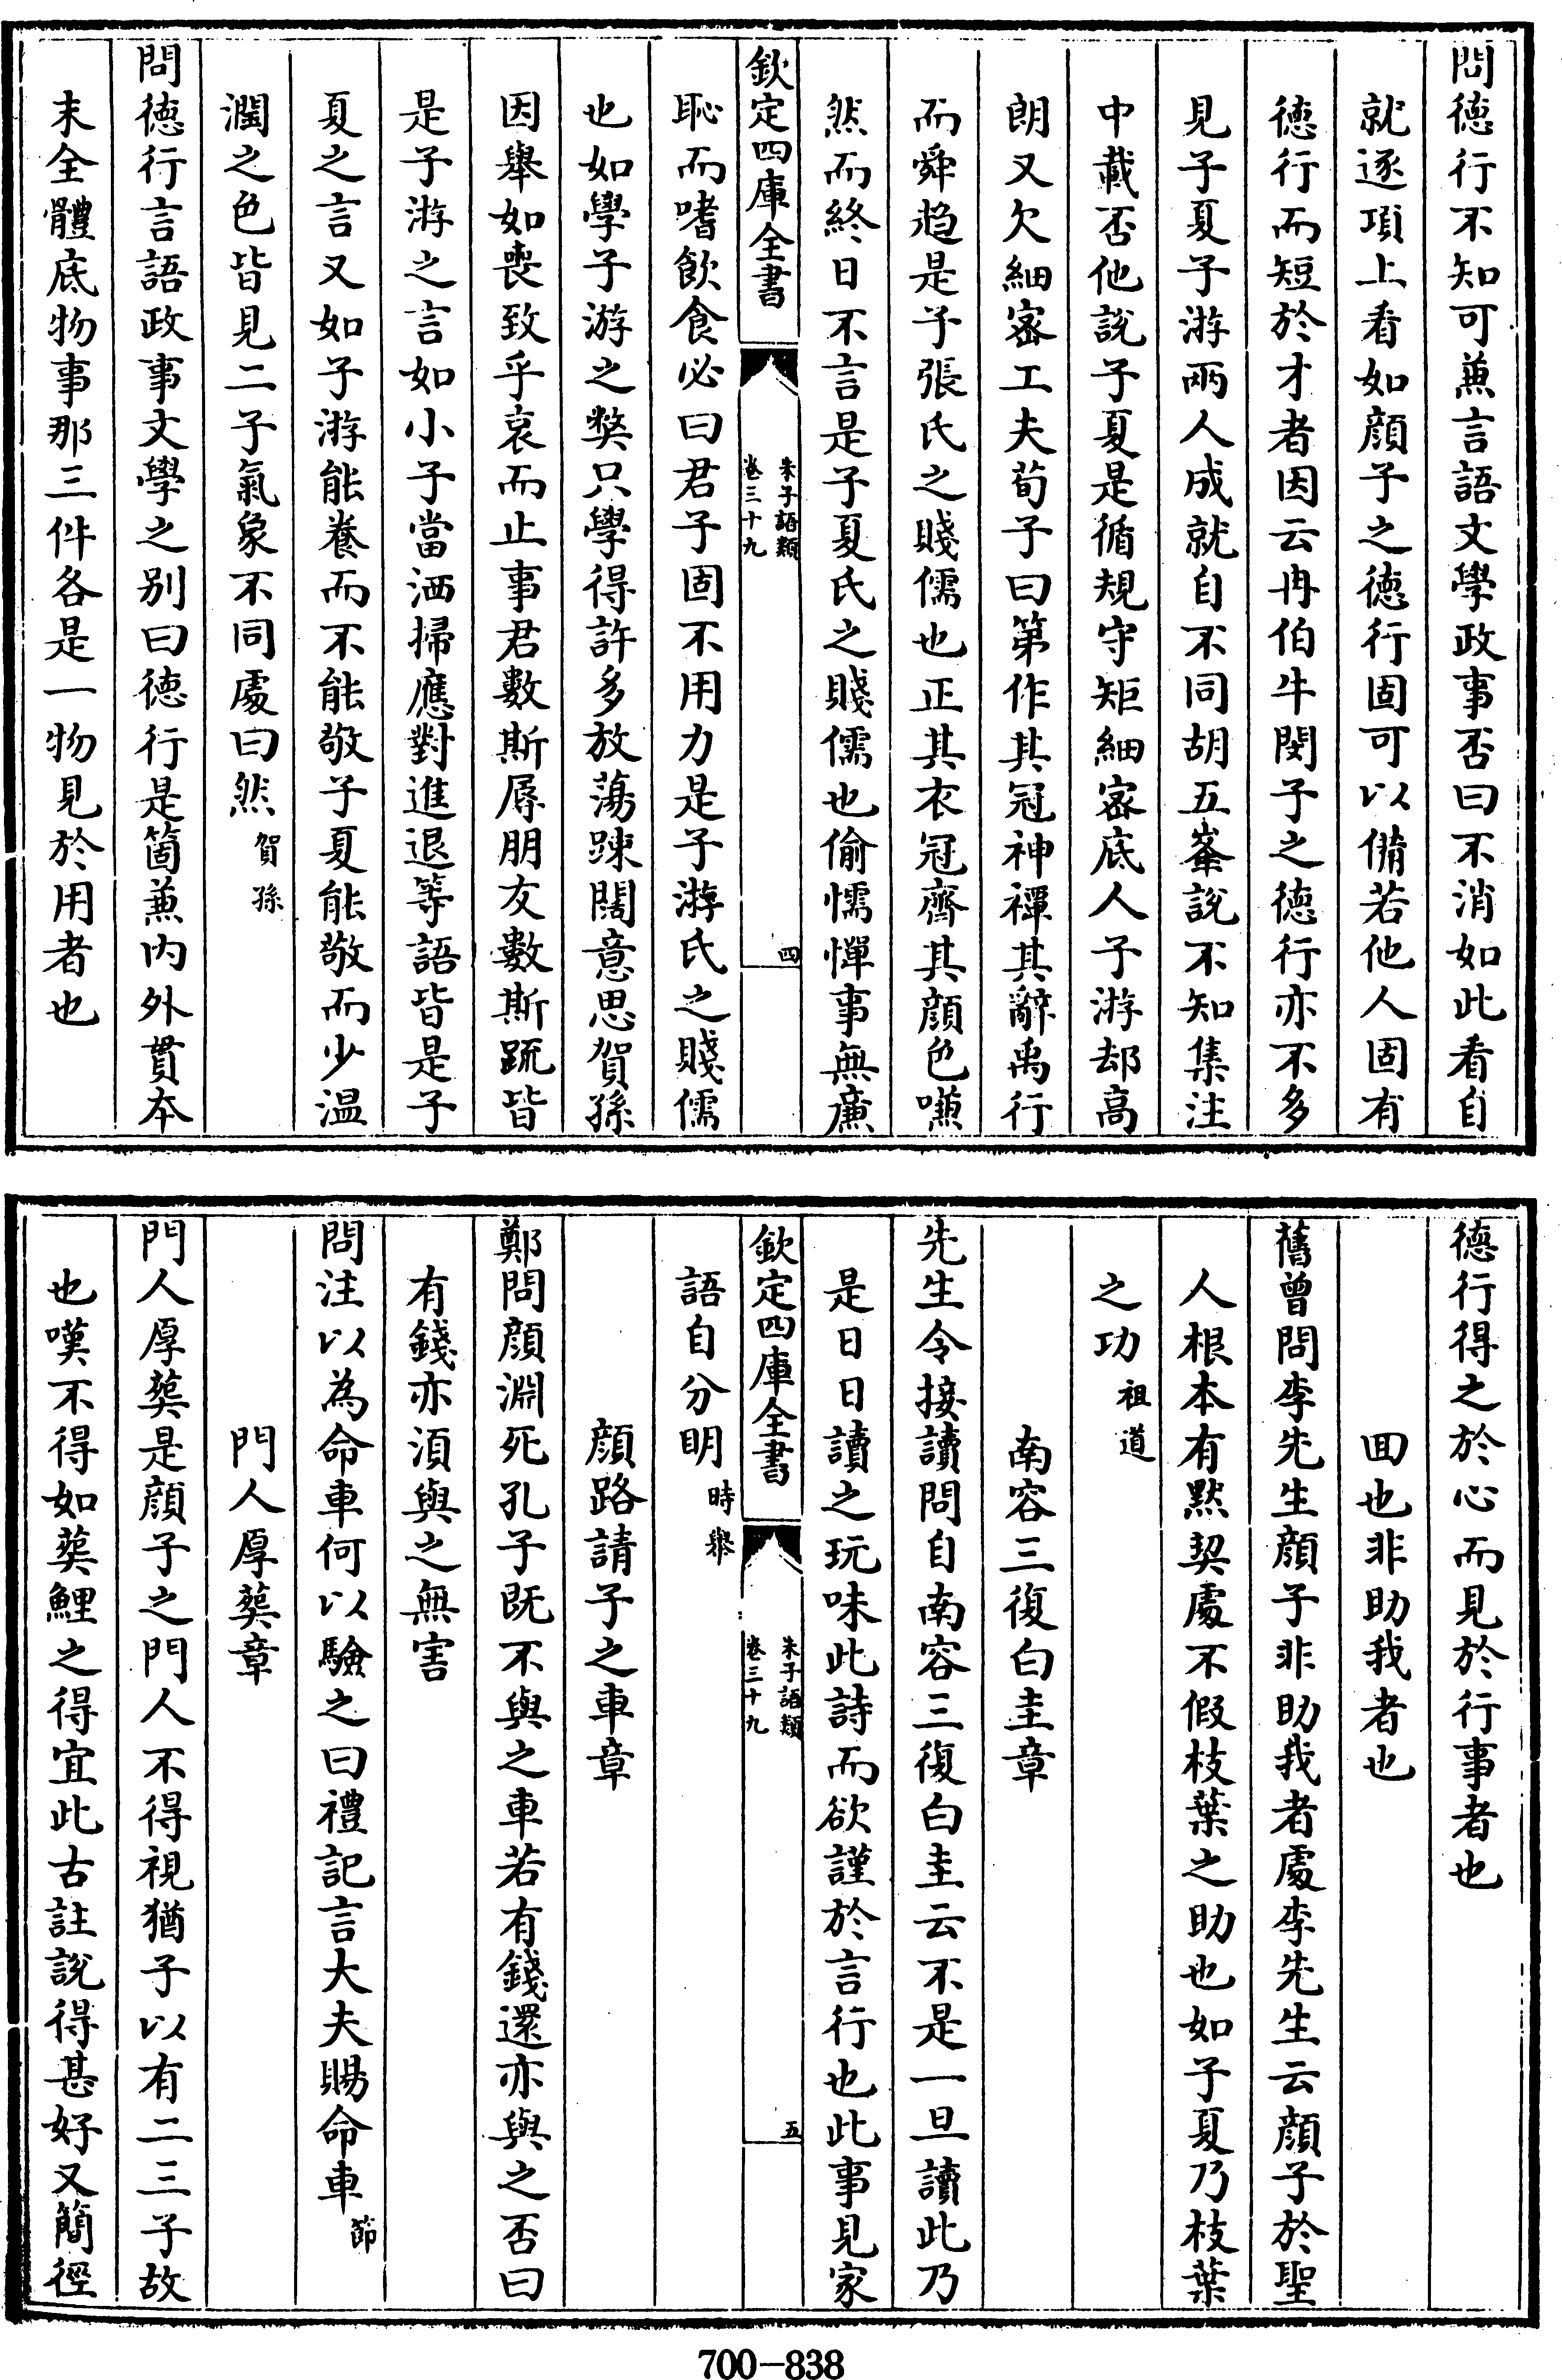 問德行不知可兼言語文學政事否曰不消如此看自
就逐項上看如顔子之德行固可以備若他人固有
德行而短於才者因云冉伯牛閔子之德行亦不多
見子夏子游兩人成就自不同胡五峯說不知集注
中載否他說子夏是循規守矩細密底人子游却高
朗又欠細密工夫荀子曰第作其冠神禫其辭禹行
而舜趨是子張氏之賤儒也正其衣冠齊其顔色嗛
然而終日不言是子夏氏之賤儒也偷懦憚事無廉
欽定四庫全書
朱子語類
卷三十九
四
恥而嗜飲食必曰君子固不用力是子游氏之賤儒
也如學子游之獘只學得許多放蕩踈闊意思賀孫
因舉如喪致乎哀而止事君數斯辱朋友數斯疏皆
是子游之言如小子當洒掃應對進退等語皆是子
夏之言又如子游能養而不能敬子夏能敬而少温
潤之色皆見二子氣象不同處曰然賀孫
問德行言語政事文學之别曰德行是箇兼内外貫本
末全體底物事那三件各是一物見於用者也
德行得之於心而見於行事者也
囬也非助我者也
舊曾問李先生顔子非助我者處李先生云顔子於聖
人根本有黙契處不假枝葉之助也如子夏乃枝葉
之功祖道
南容三復白圭章
先生令接讀問目南容三復白圭云不是一旦讀此乃
是日日讀之玩味此詩而欲謹於言行也此事見家
欽定四庫全書
朱子語類
卷三十九
五
語自分明時舉
顔路請子之車章
鄭問顔淵死孔子既不與之車若有錢還亦與之否曰
有錢亦湏與之無害
問注以為命車何以驗之曰禮記言大夫賜命車節
門人厚葬章
門人厚葬是顔子之門人不得視猶子以有二三子故
也嘆不得如葬鯉之得宜此古註說得甚好又簡徑
700-838